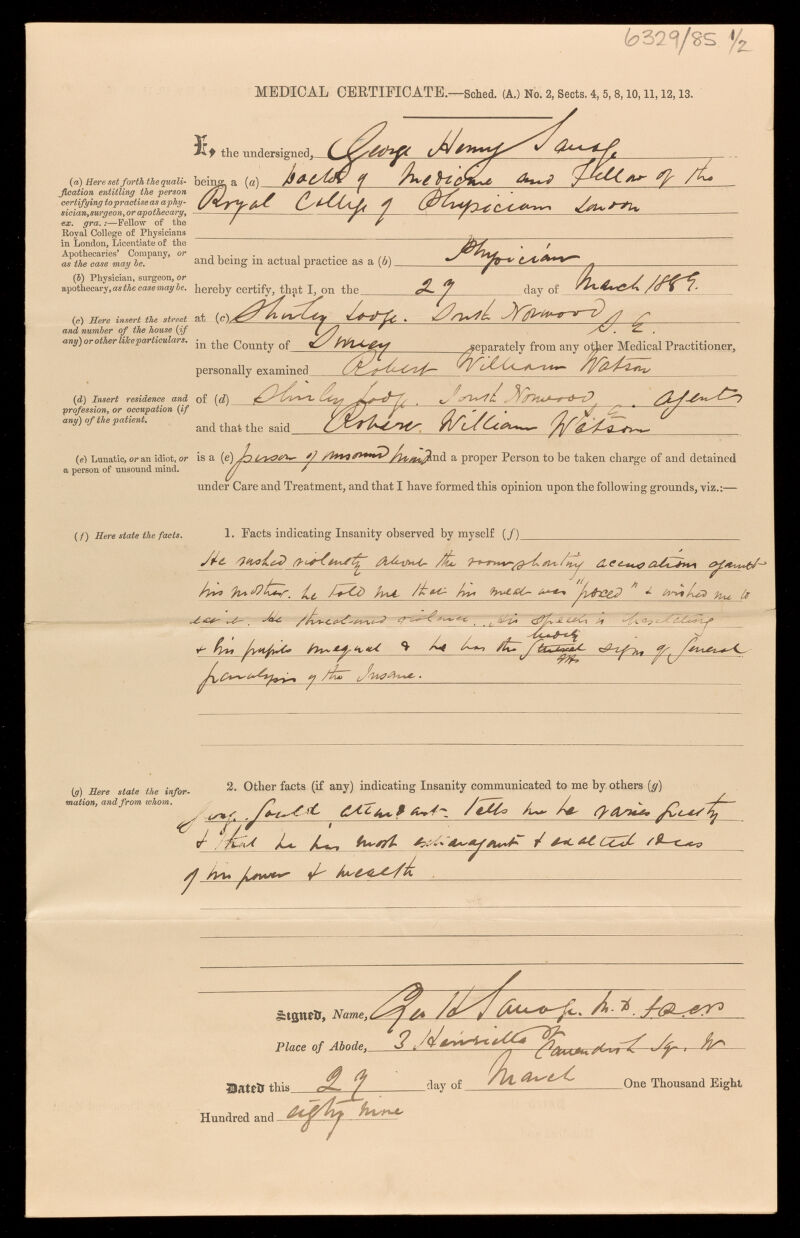 6329/85 1/2
MEDICAL CERTIFICATE.—Sched. (A.) No. 2, Sects. 4, 5, 8, 10, 11, 12, 13.
I, the undersigned, George Henry Savage
(a) Here set forth the quali-
fication entitling the person
certifying to practise as a phy-
sician, surgeon, or apothecary,
ex. gra.:—Fellow of the
Royal College of Physicians
in London, Licentiate of the
Apothecaries' Company, or
as the case may be.
being a (a) Doctor of Medicine and Fellow of the
Royal College of Physicians London
and being in actual practice as a (b) Physician
(b) Physician, surgeon, or
apothecary, as the case may be.
hereby certify, that I, on the 27 day of March 1889.
(c) Here insert the street
and number of the house (if
any) or other like particulars.
at (c) Shirley Lodge. South Norwood S. E.
in the County of Surrey separately from any other Medical Practitioner,
personally examined Robert William Watson
(d) Insert residence and
profession, or occupation (if
any) of the patient.
of (d) Shirley Lodge. South Norwood S. E. agent
and that the said Robert William Watson
(e) Lunatic, or an idiot, or
a person of unsound mind.
is a (e) person of unsound mind and a proper Person to be taken charge of and detained
under Care and Treatment, and that I have formed this opinion upon the following grounds, viz.:—
(f) Here state the facts.
1. Facts indicating Insanity observed by myself (f)
He rushed violently about the room shouting accusations against
his mother. he told me that his meat was "poxed" & wished me to
He threatened violence. his speech is hesitating
& his pupils unequal & he has the bodily signs of General
paralysis of the Insane.
(g) Here state the infor-
mation, and from whom.
2. Other facts (if any) indicating Insanity communicated to me by others (g)
Gould attendant. tells me he varies greatly
& that he has most extravagant & exalted ideas
of his power & wealth.
Signed, Name, Geo H Savage. M.D. F.R.C.P.
Place of Abode, 3 Henrietta St Cavendish Sq. W
Dated this 27 day of March One Thousand Eight
Hundred and eighty nine